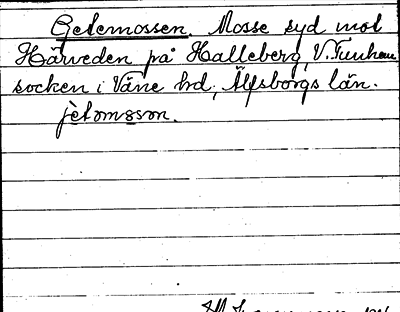 Getemossen. Mosse syd mot
Härveden på Halleberg, V. Tunhem
socken i Väne hd, Älfsborgs län.
jètomsson.